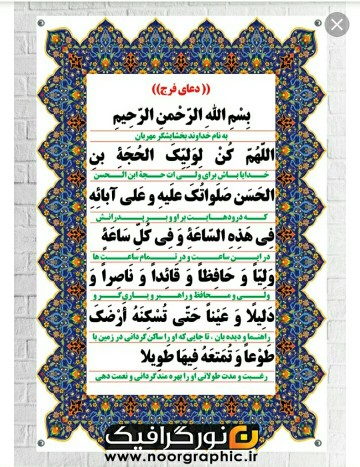 ((دعای فرج))
بِسْمِ اللهِ الرَّحْمنِ الرَّحِيمِ
به نام خداوند بخشایشگر مهربان
اَللّهُمَّ كُنْ لِوَلِيِّکَ الحُجَةِ بنِ
خدایا باش برای ولی ات حجة ابن الحسن
الحَسَن صَلَواتُکَ عَلَيهِ وَ عَلی آبائِهِ
که درودهایت بر او و بر پدرانش
فِی هَذِهِ السّاعَةِ وَ فِی كُلِّ ساعَةٍ
در این ساعت و در تمام ساعت ها
وَلِيّاً وَ حَافِظاً وَ قائِداً وَ ناصِراً وَ
ولی و محافظ و راهبر و یاری گر و
دَلِيلًا وَ عَيناً حَتّی تُسكِنَهُ أَرْضَکَ
راهنما و دیده بان ، تا جایی که او را ساکن گردانی در زمین با
طَوْعاً وَ تُمَتِّعَهُ فِيهَا طَوِيلا
رغبت و مدت طولانی او را بهره مند گردانی و نعمت دهی
نور گرافیک
www.noorgraphic.ir